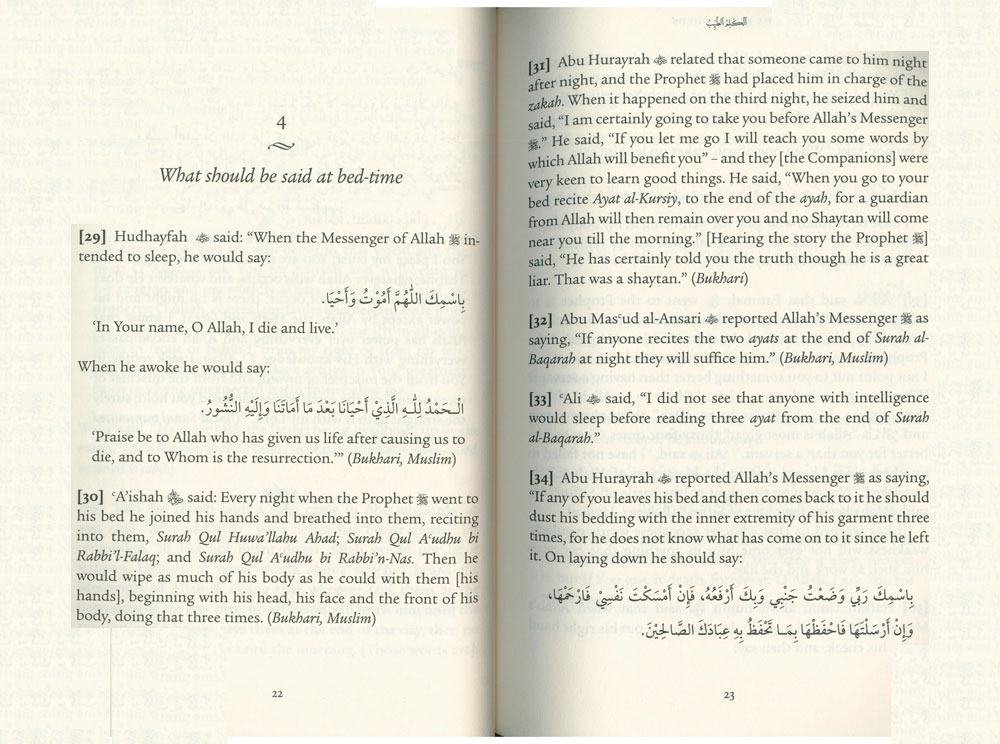 4
What should be said at bed-time
[29] Hudhayfah ؓ said: “When the Messenger of Allah ﷺ in-
tended to sleep, he would say:
بِاسْمِكَ اللّٰهُمَّ أَمُوْتُ وَأَحْيَا.
‘In Your name, O Allah, I die and live.’
When he awoke he would say:
الْـحَمْدُ لِلّٰـهِ الَّذِيْ أَحْيَانَا بَعْدَ مَا أَمَاتَنَا وَإِلَيْهِ النُّشُوْرُ.
‘Praise be to Allah who has given us life after causing us to
die, and to Whom is the resurrection.’” (Bukhari, Muslim)
[30] ʿA’ishah said: Every night when the Prophet ﷺ went to
his bed he joined his hands and breathed into them, reciting
into them, Surah Qul Huwa’llahu Ahad; Surah Qul Aʿudhu bi
Rabbi’l-Falaq; and Surah Qul Aʿudhu bi Rabbi’n-Nas. Then he
would wipe as much of his body as he could with them [his
hands], beginning with his head, his face and the front of his
body, doing that three times. (Bukhari, Muslim)
22
الكلم الطيب
[31] Abu Hurayrah ؓ related that someone came to him night
after night, and the Prophet ﷺ had placed him in charge of the
zakah. When it happened on the third night, he seized him and
said, “I am certainly going to take you before Allah’s Messenger
ﷺ.” He said, “If you let me go I will teach you some words by
which Allah will benefit you” – and they [the Companions] were
very keen to learn good things. He said, “When you go to your
bed recite Ayat al-Kursiy, to the end of the ayah, for a guardian
from Allah will then remain over you and no Shaytan will come
near you till the morning.” [Hearing the story the Prophet ﷺ]
said, “He has certainly told you the truth though he is a great
liar. That was a shaytan.” (Bukhari)
[32] Abu Masʿud al-Ansari ؓ reported Allah’s Messenger ﷺ as
saying, “If anyone recites the two ayats at the end of Surah al-
Baqarah at night they will suffice him.” (Bukhari, Muslim)
[33] ʿAli ؓ said, “I did not see that anyone with intelligence
would sleep before reading three ayat from the end of Surah
al-Baqarah.”
[34] Abu Hurayrah ؓ reported Allah’s Messenger ﷺ as saying,
“If any of you leaves his bed and then comes back to it he should
dust his bedding with the inner extremity of his garment three
times, for he does not know what has come on to it since he left
it. On laying down he should say:
بِاسْمِكَ رَبِّي وَضَعْتُ جَنْبِي وَبِكَ أَرْفَعُهُ، فَإِنْ أَمْسَكْتَ نَفْسِيْ فَارْحَمْهَا،
وَإِنْ أَرْسَلْتَهَا فَاحْفَظْهَا بِمَـا تَحْفَظُ بِهِ عِبَادَكَ الصَّالِحِيْنَ.
23